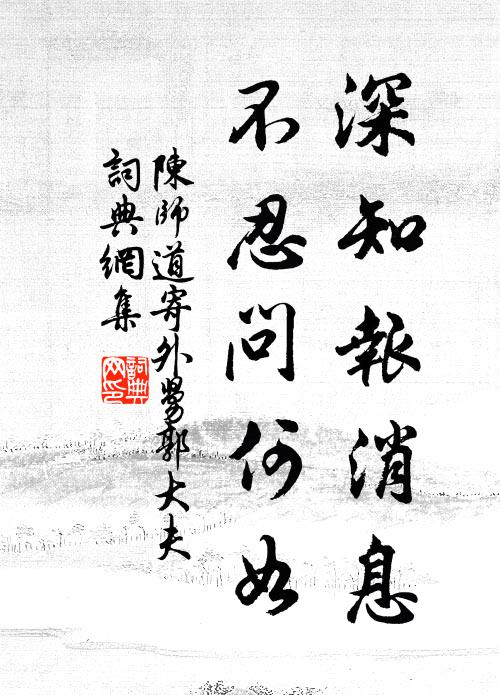 深知報消息
不忍問何如
陳師道寄外舅郭大夫
詞典網集
詞典網印